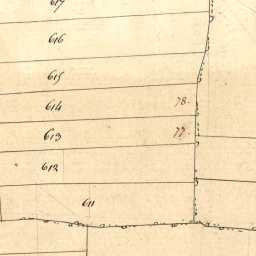 617
616
615
614 78.
613 77.
612
611